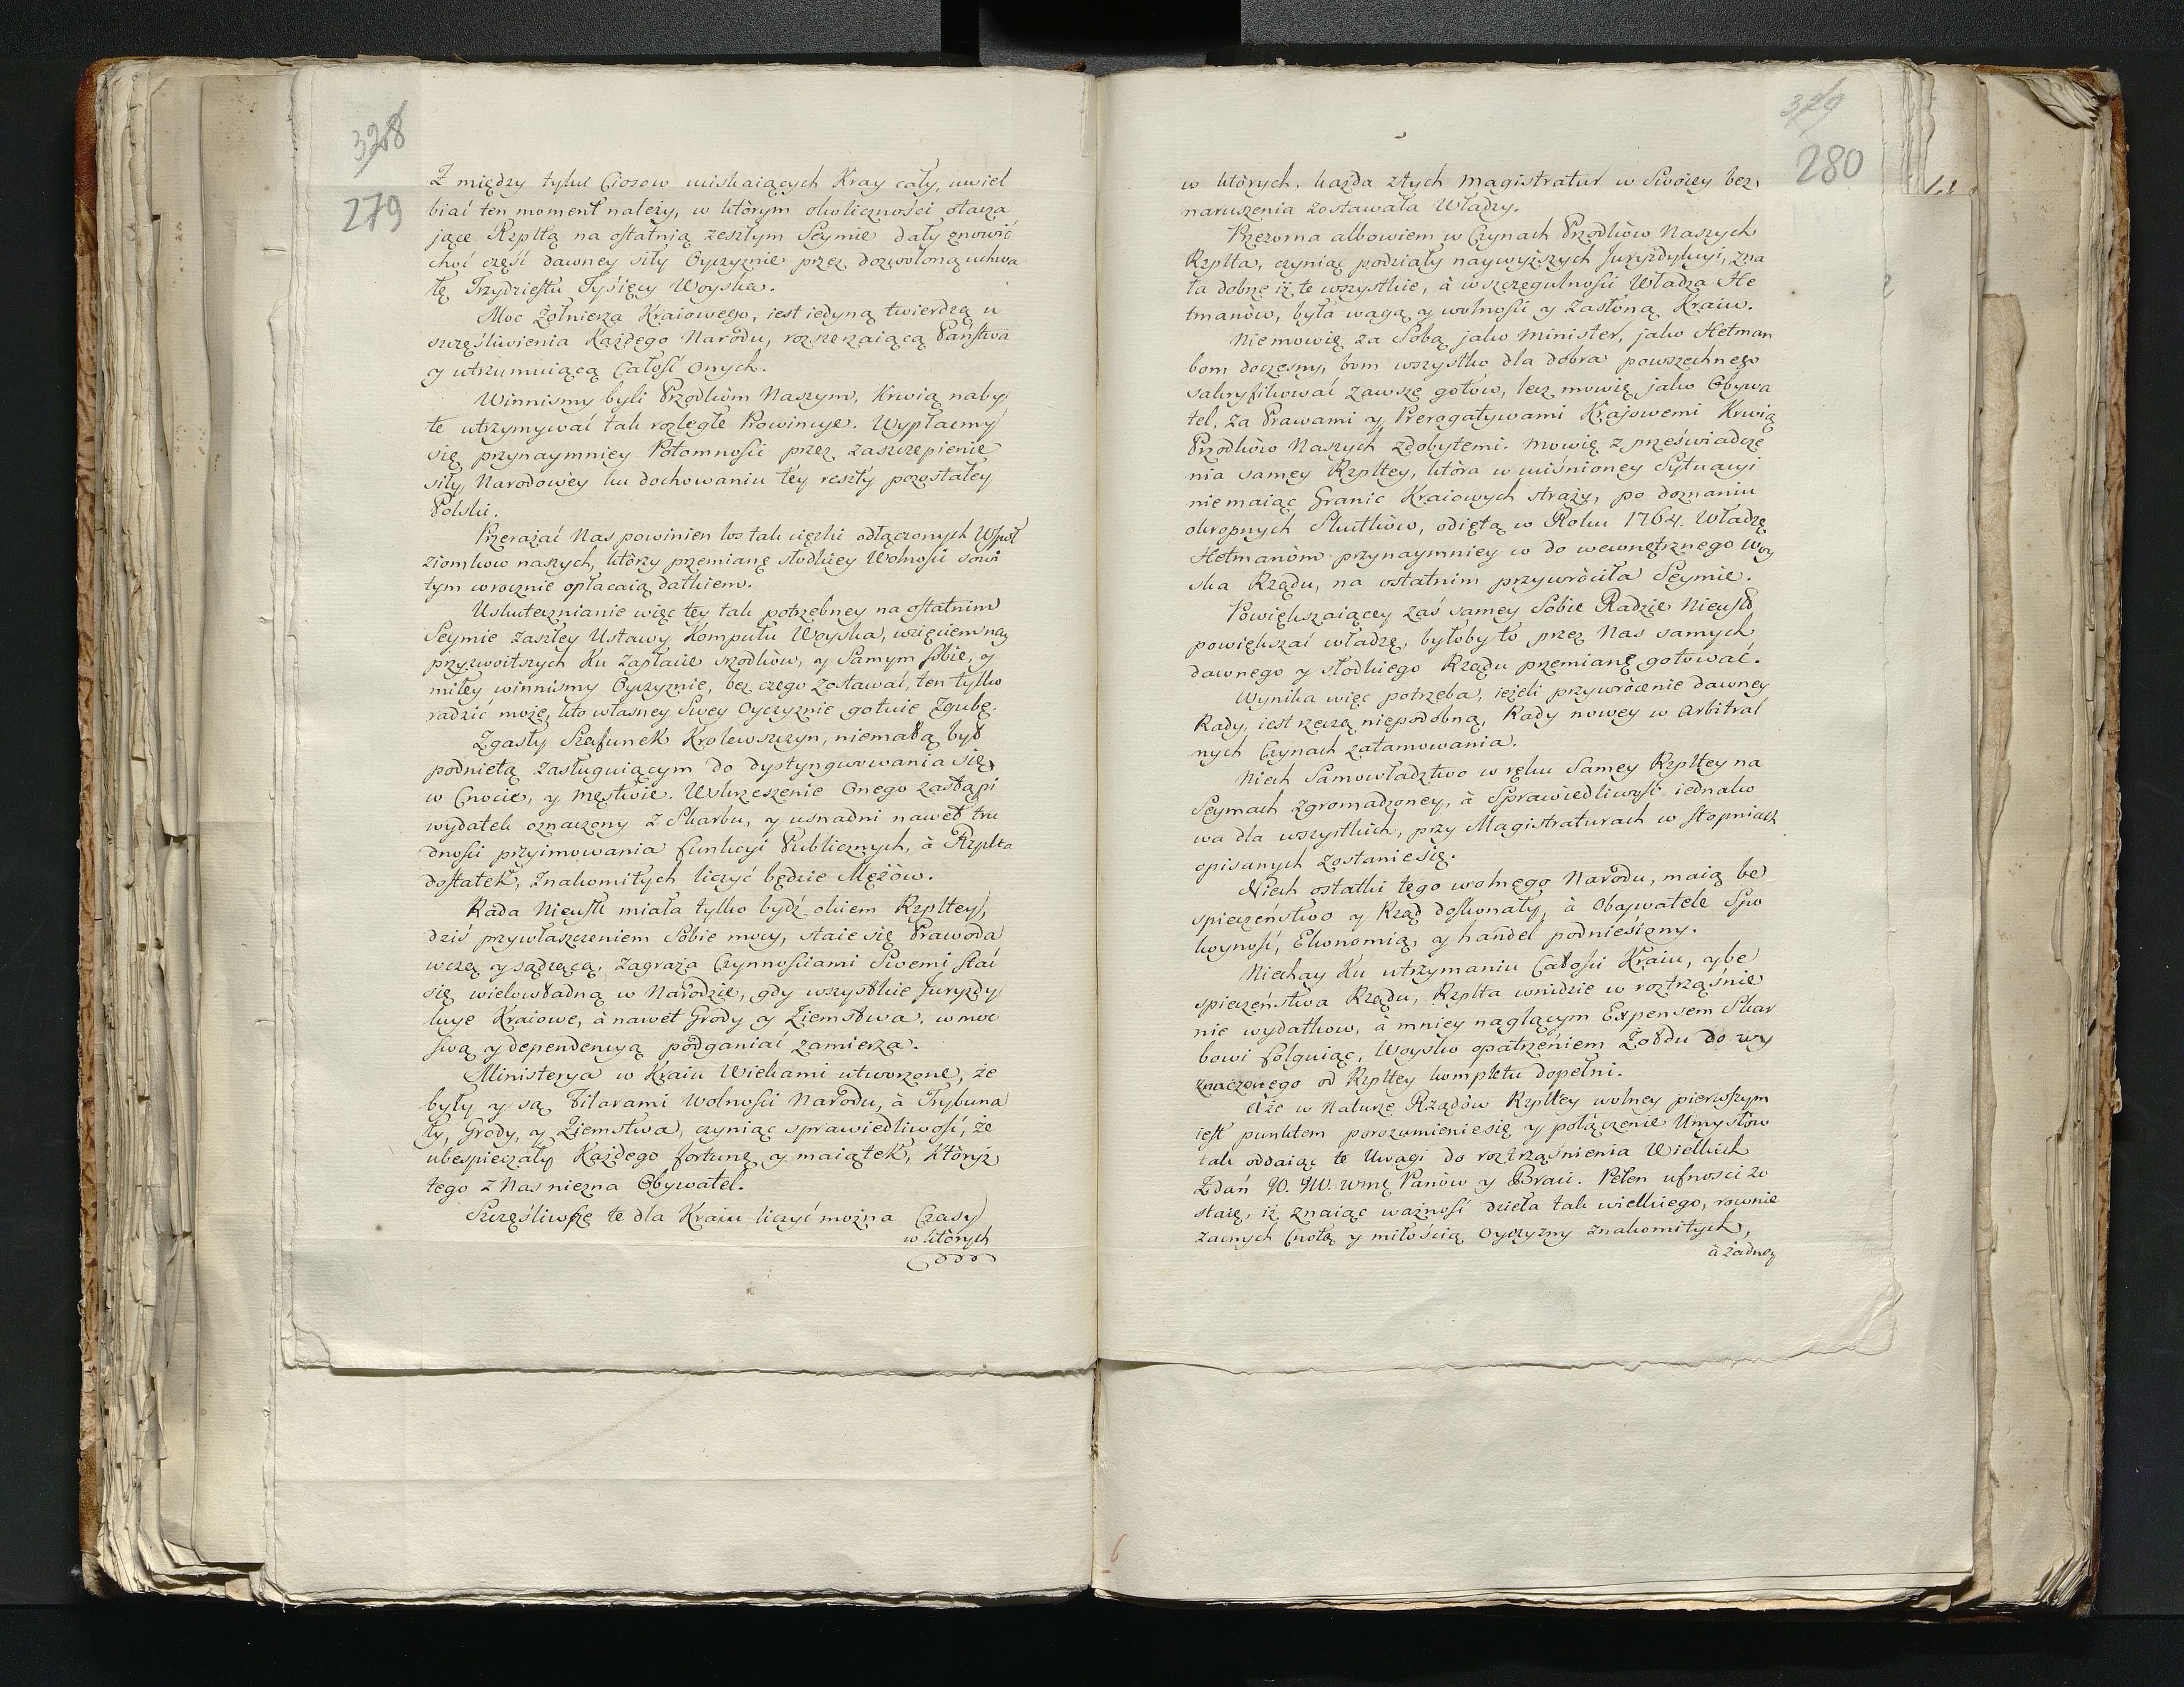 328
279
Z między tylu Ciosow uiskaiących Kray cały, uwiel
biać ten moment należy, w którym okoliczności otacza
jące Rzpltą na ostatnią zeszłym Seymie dały znowić
choć część dawney siły Oyczyznie przez dozwoloną uchwa
łę Trzydziestu Tysięcy Woyska.
Moc Żołnierza Kraiowego, iest iedyną twierdzą u
szczęśliwienia Każdego Narodu, rozszerzaiącą Państwa
y utrzumuiącą Całość onych.
Winnismy byli Przodkom Naszym, Krwią naby
te utrzymywać tak rozległe Prowincye. Wypłacmy
się przynaymniey Potomnosci przez zaszczepienie
siły Narodowey ku dochowaniu tey reszty pozostałey
Polski.
Przerażać Nas powinien los tak ciężki odłączonych Wspoł
ziomkow naszych, którzy przemianę słodkiey Wolnosci sowi
tym wrocznie opłacaią datkiem.
Uskutecznianie więc tey tak potrzebney na ostatnim
Seymie zaszłey Ustawy Komputu Woyska, wzięciem nay
przyzwoitszych Ku zapłacie srzodkow, y Samym sobie, y
miłey winnismy Oyczyznie, bez czego zostawać, ten tylko
radzić może, kto własney Swey Oyczyznie gotuie Zgubę.
Zgasły Szafunek Krolewszczyn, niemałą był
podnietą zasługuiącym do dystyngwowania się
w Cnocie, y męstwie. Wskrzeszenie Onego zastąpi
wydatek oznaczony z Skarbu, y usnadni nawet tru
dnosci przyimowania funkcyi Publicznych, à Rzplta
dostatek, Znakomitych liczyć będzie Mężów.
Rada Nieust: miała tylko bydź okiem Rzpltey,
dziś przywłaszczeniem Sobie mocy, staie się Prawoda
wczą y sądzącą, zagraża Czynnosciami Swemi stać
się wielowładną w Narodzie, gdy wszystkie Juryzdy
kcye Kraiowe, à nawet Grody y Ziemstwa, w moc
swą y dependencyą podganiać zamierza.
Ministerya w Kraiu Wiekami utworzone, że
były y są Filarami Wolnosci Narodu, à Trybuna
ły, Grody, y Ziemstwa, czyniąc sprawiedliwość, że
ubespieczały Każdego fortunę y maiątek, Któryż
tego z Nas niezna Obywatel.
Szczęśliwsze te dla Kraiu liczyć można Czasy
w których
329
280
w których, każda złych Magistratur w Swoiey bez
naruszenia zostawała Władzy.
Przezorna albowiem w Czynach Przodków Naszych
Rzplta, czyniąc podziały naywyższych Juryzdykcyi, zna
ła dobrze iż te wszystkie, à w szczegulnosci Władza He
tmanów, była wagą y wolnosci y Zasłoną Kraiu.
Niemowię za Sobą jako Minister, jako Hetman
bom doczesny, bom wszystko dla dobra powszechnego
sakryfikować zawsze gotów, lecz mowię jako Obywa
tel, za Prawami y Prerogatywami Krajowemi Krwią
Przodków Naszych zdobytemi. Mowię z przeświadcze
nia samey Rzpltey, która w uiśnioney Sytuacyi
niemaiąc Granic Kraiowych straży, po doznaniu
okropnych Skutków, odiętą w Roku 1764. Władzę
Hetmanóm przynaymniey w do wewnętrznego Woy
ska Rządu, na ostatnim przywróciła Seymie.
Powiększaiącey zaś samey Sobie Radzie Nieust:
powiększać władzę, byłoby to przez Nas samych
dawnego y słodkiego Rządu przemianę gotować.
Wynika więc potrzeba, ieżeli przywrócenie dawney
Rady, iest rzeczą niepodobną, Rady nowey w arbitral
nych Czynach zatamowania.
Niech Samowładztwo w ręku Samey Rzpltey na
Seymach zgromadzoney, à Sprawiedliwość iednako
wa dla wszystkich, przy Magistraturach w stopniach
opisanych zostanie się.
Niech ostatki tego wolnego Narodu, maią be
spieczeństwo y Rząd doskonały, à Obywatele Spo
koyność, Ekonomią, y handel podniesiony.
Niechay Ku utrzymaniu Całosci Kraiu, y be
spieczeństwa Rządu, Rzplta wnidzie w roztrząśnie
nie wydatkow, à mniey naglącym Expensem Skar
bowi folguiąc, Woysko opatrzeniem Żołdu do wy
znaczonego od Rzpltey kompletu dopełni.
A że w Naturze Rządów Rzpltey wolney pierwszym
iest punktem porozumienie się y połączenie Umysłów
tak oddaiąc te Uwagi do roztrząśnienia Wielkich
Zdań W. W. Panów y Braci. Pełen ufnosci zo
staię, iż znaiąc ważność dzieła tak wielkiego, rownie
zacnych Cnotą y miłością Oyczyzny znakomitych,
à żadney
6